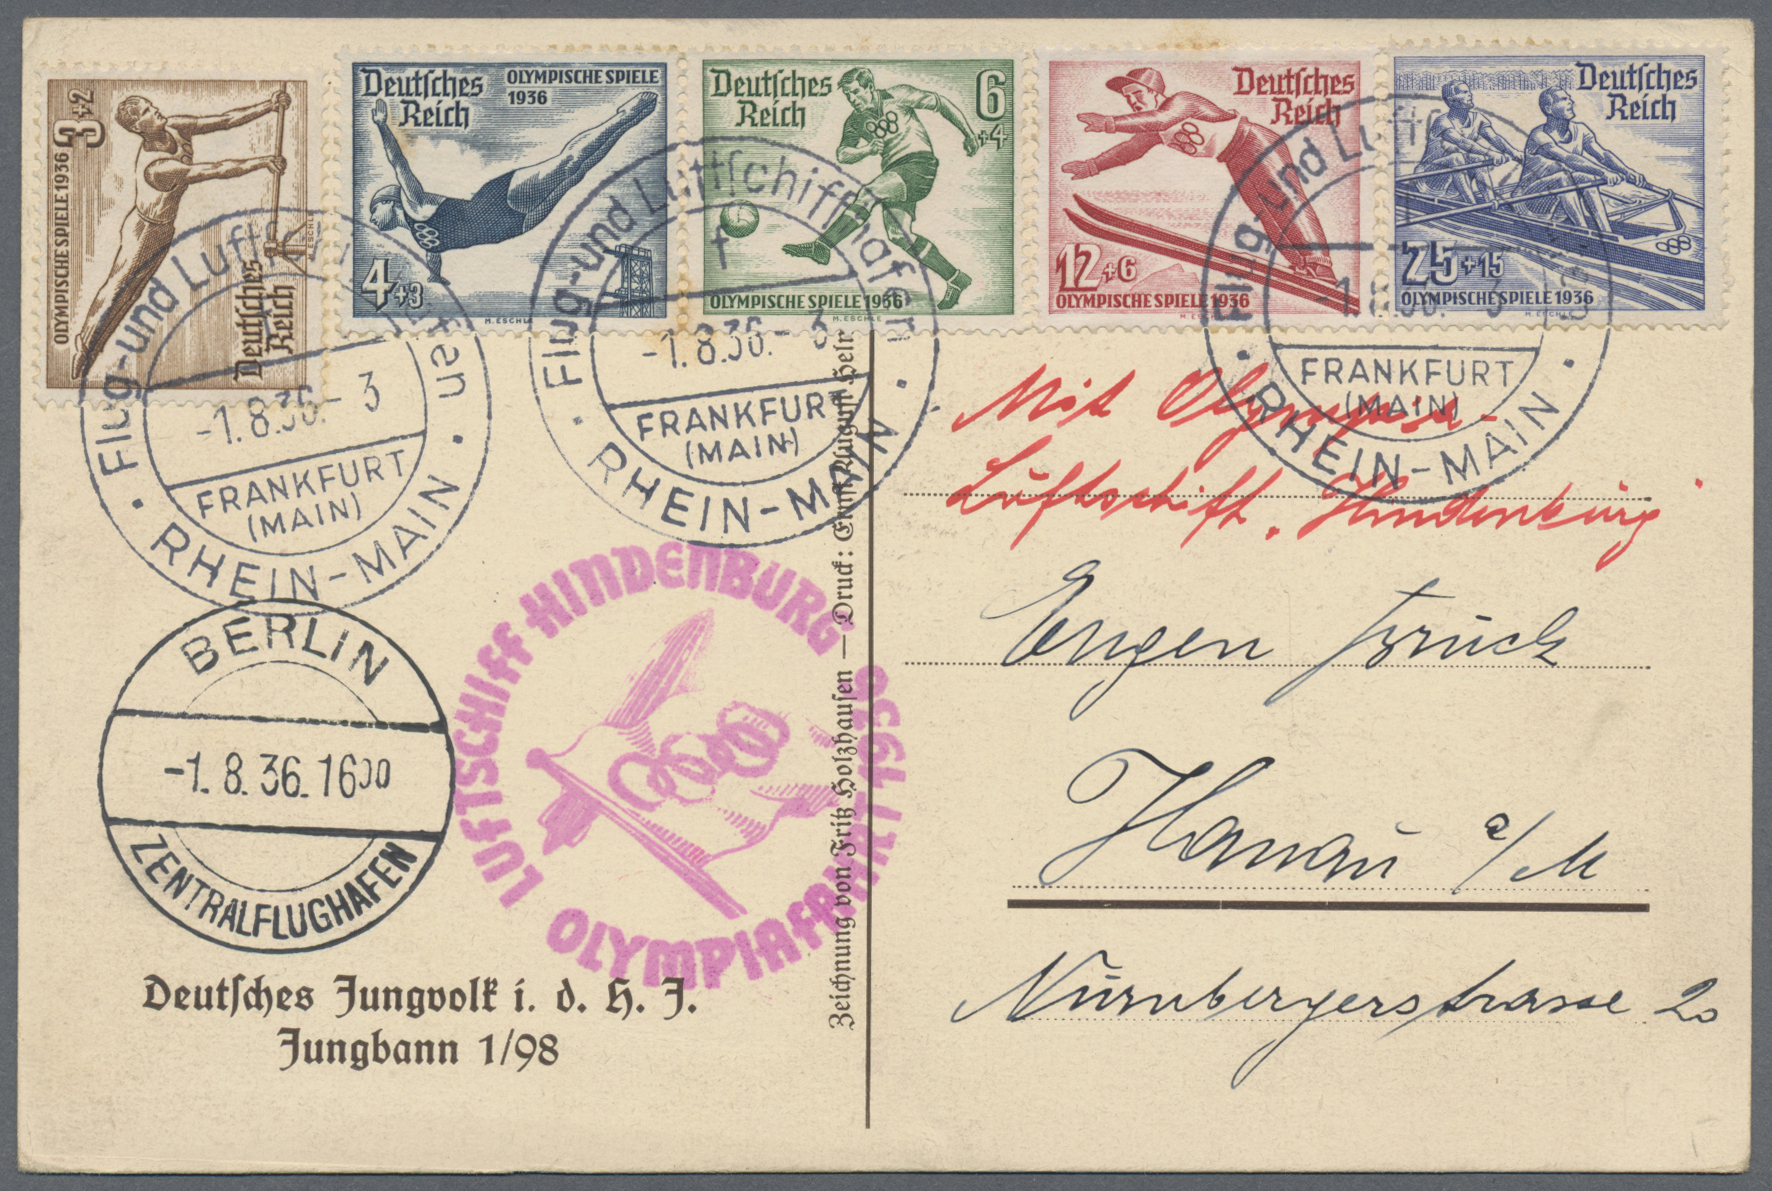 3+2
OLYMPISCHE SPIELE 1936
Deutsches
Reich
Deutsches
Reich
OLYMPISCHE SPIELE
1936
4+3
M. ESCHLE
Deutsches
Reich
6
+4
OLYMPISCHE SPIELE 1936
M. ESCHLE
Deutsches
Reich
12+6
OLYMPISCHE SPIELE 1936
Deutsches
Reich
25+15
OLYMPISCHE SPIELE 1936
M. ESCHLE
Flug-und Luftschiffhafen
-1.8.36.- 3
FRANKFURT
(MAIN)
RHEIN-MAIN
Flug-und Luftschiffhafen
f
-1.8.36.- 3
FRANKFURT
(MAIN)
RHEIN-MAIN
Flug-und
-1.8.36. 3
FRANKFURT
(MAIN)
RHEIN-MAIN
Mit Olympia-
Luftschiff „Hindenburg"
BERLIN
-1.8.36.1600
ZENTRALFLUGHAFEN
LUFTSCHIFF HINDENBURG
OLYMPIAFAHRT 1936
Zeichnung von Fritz Holzhausen — Druck: Ernst
Eugen Bruck
Hanau a/M
Nürnbergerstrasse 20
Deutsches Jungvolk i. d. H. J.
Jungbann 1/98